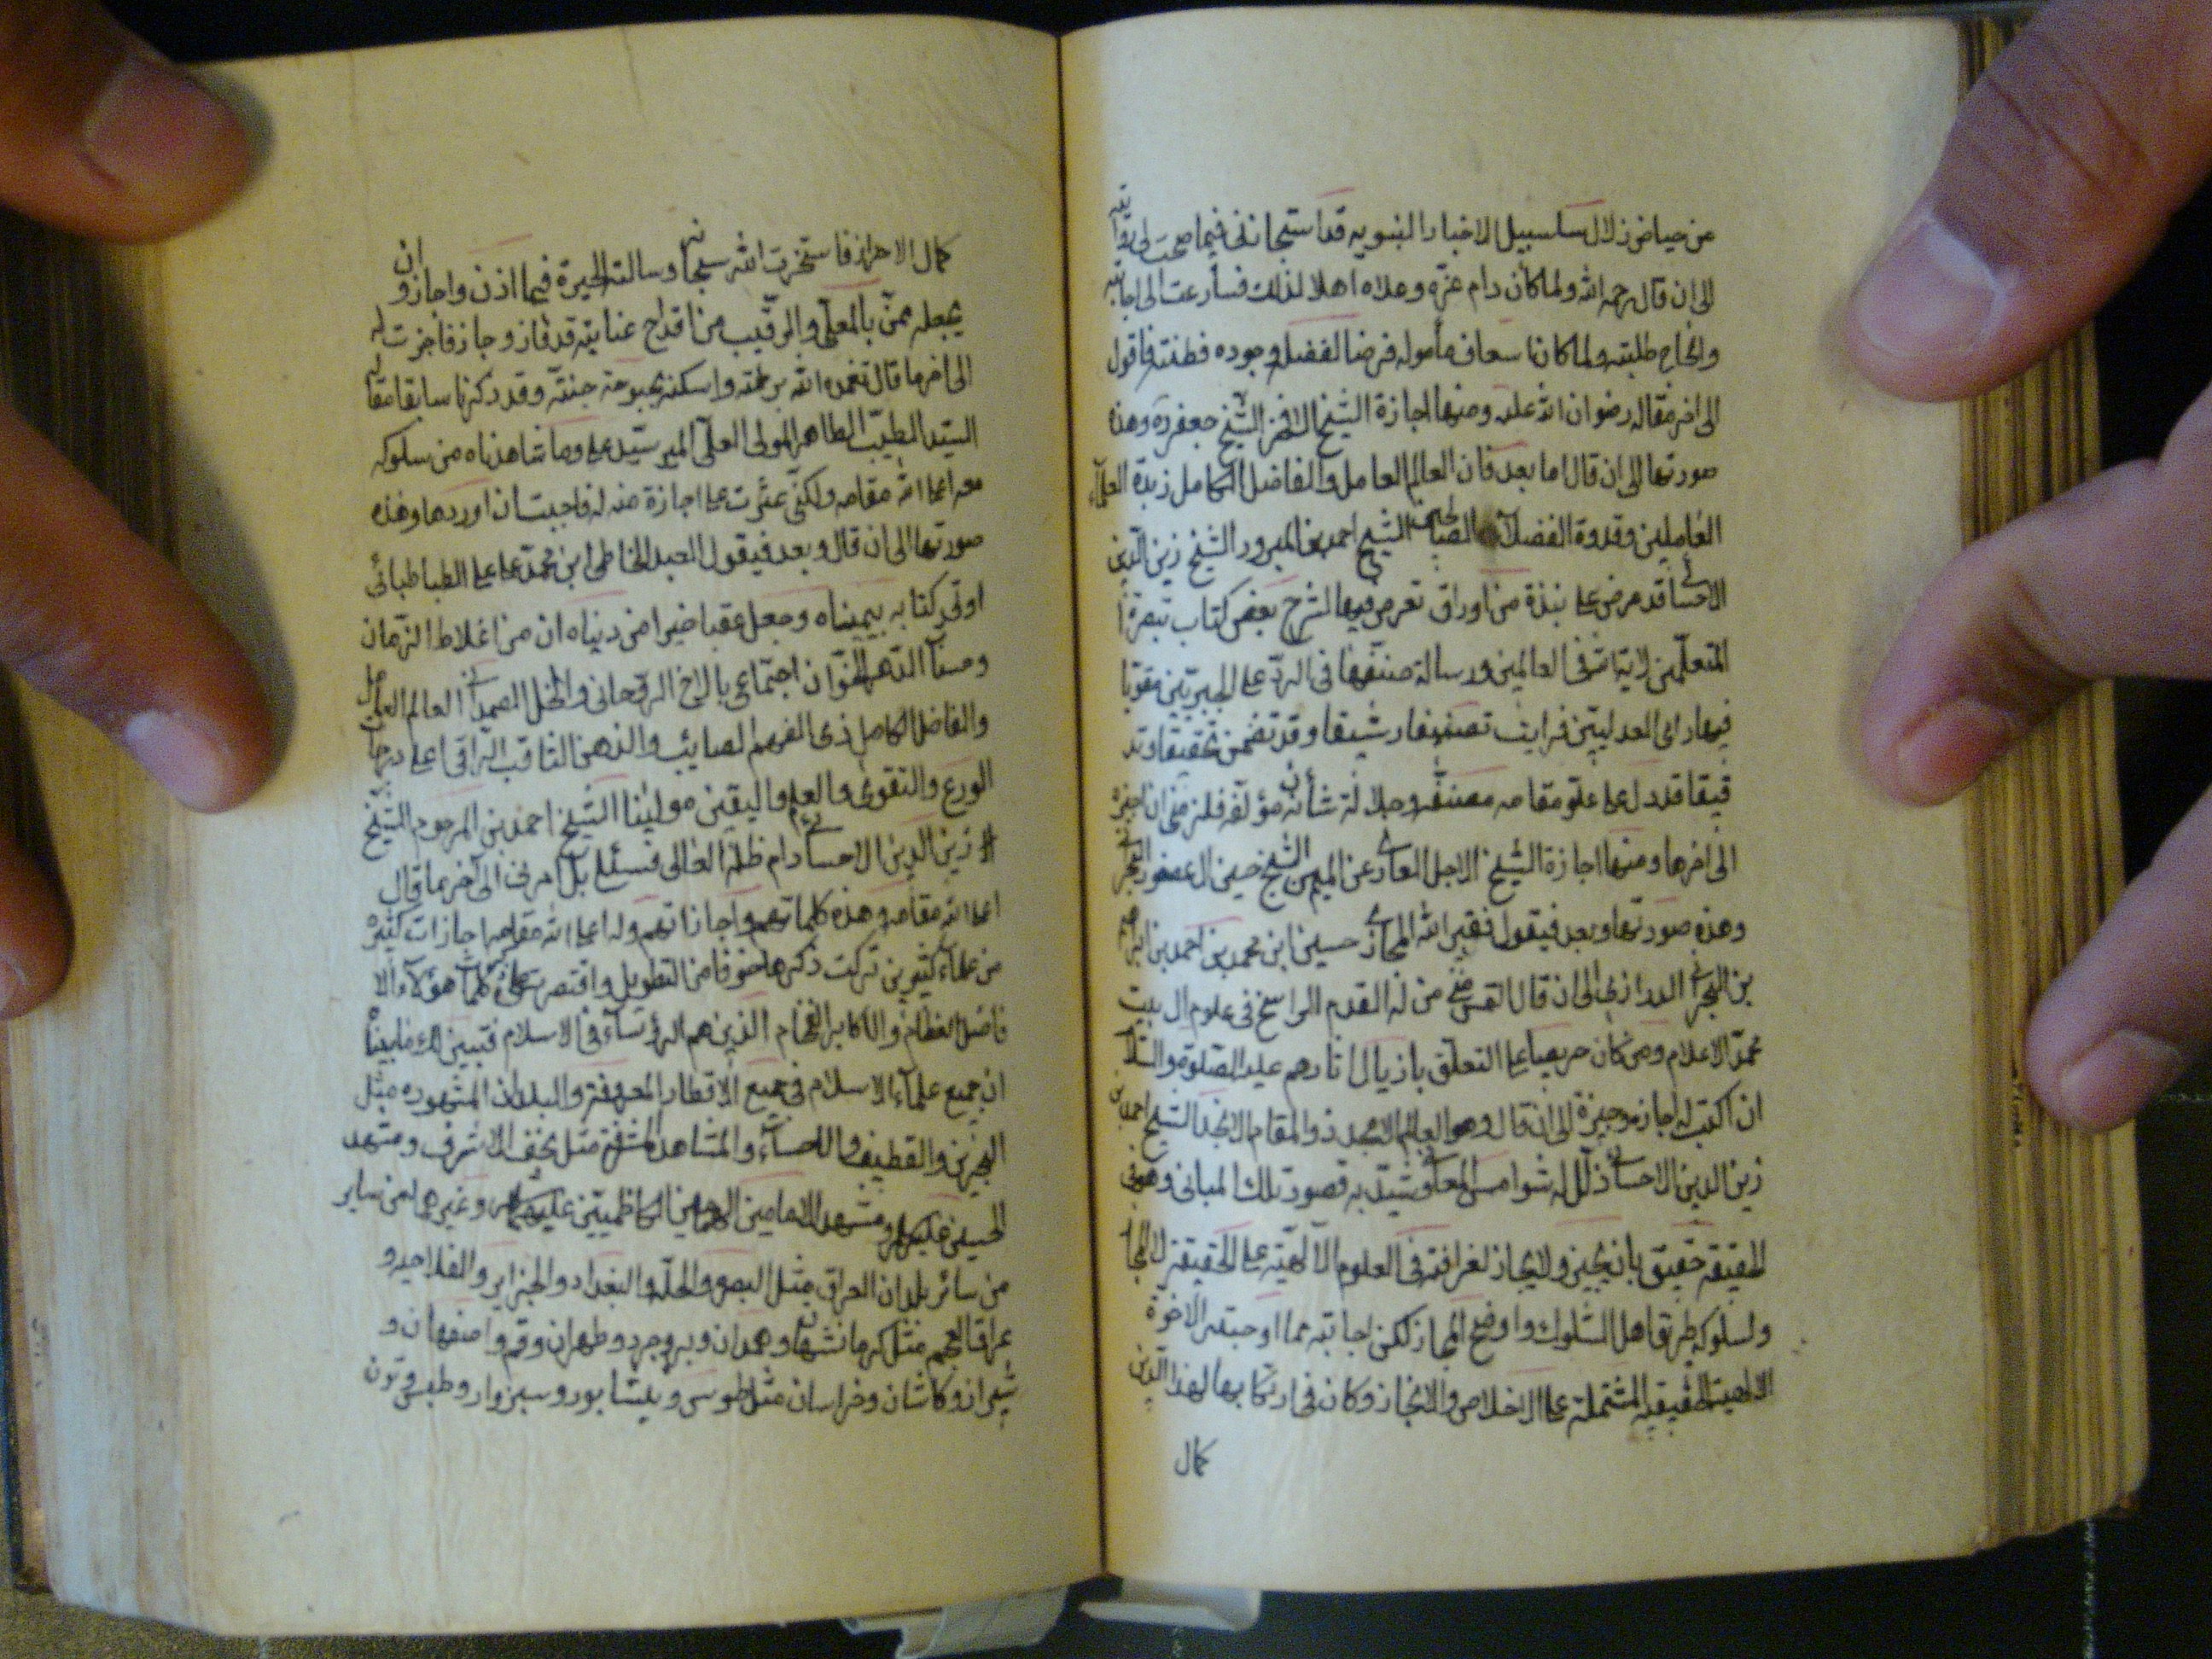 من حياض زلال سلسبيل الاخبار النبويه قد استجازنى فيما صحت لى روايته
الى ان قال رحمه الله ولما كان دام عزّه وعلاه اهلا لذلك فسارعت الى اجابته
وانجاح طلبته ولما كان اسعاف مأموله فرضا لفضله وجوده فطنته فاقول
الى اخر مقاله رضوان الله عليه ومنها اجازة الشيخ الافخر الشيخ جعفر ره وهذه
صورتها الى ان قال اما بعد فان العالم العامل والفاضل الكامل زبدة العلمآء
العاملين وقدوة الفضلآء الصالحين الشيخ احمد بن المبرور الشيخ زين الدّين
الاحسائى قد عرض على نبذة من اوراق تعرض فيها لشرح بعض كتاب تبصرة
المتعلّمين لاية الله فى العالمين ورسالة صنّفها فى الردّ على الجبريّين مقويا
فيها راى العدليّين فرايت تصنيفا رشيقا وقد تضمن تحقيقا وتد
قيقا قد دل على علوّ مقام مصنّفه وجلالة شأن مؤلفه فلزمنى ان اجيزه
الى اخرها ومنها اجازة الشيخ الاجل العارى عن المين الشيخ حسين ال عصفور البحرانى
وهذه صورتها وبعد فيقول فقير الله المجازى حسين ابن محمد بن احمد بن ابراهيم
بن البحرانى الدرازى الى ان قال التمس منّى من له القدم الراسخ فى علوم ال بيت
محمّد الاعلام ومن كان حريصا على التعلّق باذيال اثارهم عليهم الصّلوة والسّلام
ان اكتب له اجازه وجيزة الى ان قال وهو العالم الامجد ذو المقام الانجد الشيخ احمد بن
زين الدين الاحسائى ذلّل له شوامس المعانى وشيّد به قصور تلك المبانى وهو فى
الحقيقة حقيق بان يجيز ولا يجاز لعراقته فى العلوم الآلهيّة على الحقيقة لا المجاز
ولسلوكه طريق اهل السّلوك واوضح المجاز لكن اجابته مما اوجبته الاخوّة
الالهية الحقيقية المشتملة على الاخلاص والانجاز وكان فى ارتكابها لهذا الدّين
كمال
كمال الاحراز فاستخرت الله سبحانه وسالته الخيرة فيما اذن واجاز وان
يجعله ممن بالمعلّى والرقيب من اقداح عنايته قد فاز وجاز فاجزت له
الى اخر ما قال تغمده الله برحمته واسكنه بحبوحة جنّته وقد ذكرنا سابقا مقاله
السيّد الطيّب الطاهر المولى العلّى المير سيّد على وما شاهدناه من سلوكه
معه اعلى الله مقامه ولكنّى عثرت على اجازة منه له فاحببت ان اوردها وهذه
صورتها الى ان قال وبعد فيقول العبد الخاطى ابن محمّد على على الطباطبائى
اوتى كتابه بيمناه وجعل عقباه خيرا من دنياه ان من اغلاط الزّمان
وحسنآت الدّهر الخوّان اجتماعى بالاخ الرّوحانى والخلّ الصمدانى العالم العامل
والفاضل الكامل ذى الفهم الصايب والذهن الثاقب الراقى اعلى درجات
الورع والتقوى والعلم واليقين مولينا الشيخ احمد بن المرحوم الشيخ
زين الدين الاحسائى دام ظلّه العالى فسئلنى بل امرنى الى آخر ما قال
اعلى الله مقامه وهذه كلماتهم واجازاتهم وله اعلى الله مقامه اجازات كثيره
من علمآء كثيرين تركت ذكرها خوفا من التطويل واقتصرت على ذكر كلمات هؤلآء الا
فاضل العظام والاكابر الفخام الذين هم الرؤسآء فى الاسلام فتبين لك ما بيناه
ان جميع علمآء الاسلام فى جميع الاقطار المعروفة والبلدان المشهوره مثل
البحرين والقطيف والاحسآء والمشاهد المشرفة مثل نجف الاشرف ومشهد
الحسين ومشهد الامامين الهمامين الكاظميّين وغيرهما من ساير
من سائر بلدان العراق مثل البصره والحلّه والبغداد والجزاير والفلاحيه و
عراق العجم مثل كرمانشهان وهمدان وبروجرد وطهران وقم واصفهان و
شيراز وكاشان وخراسان مثل طوس ونيشابور وسبزوار وطبس وتون